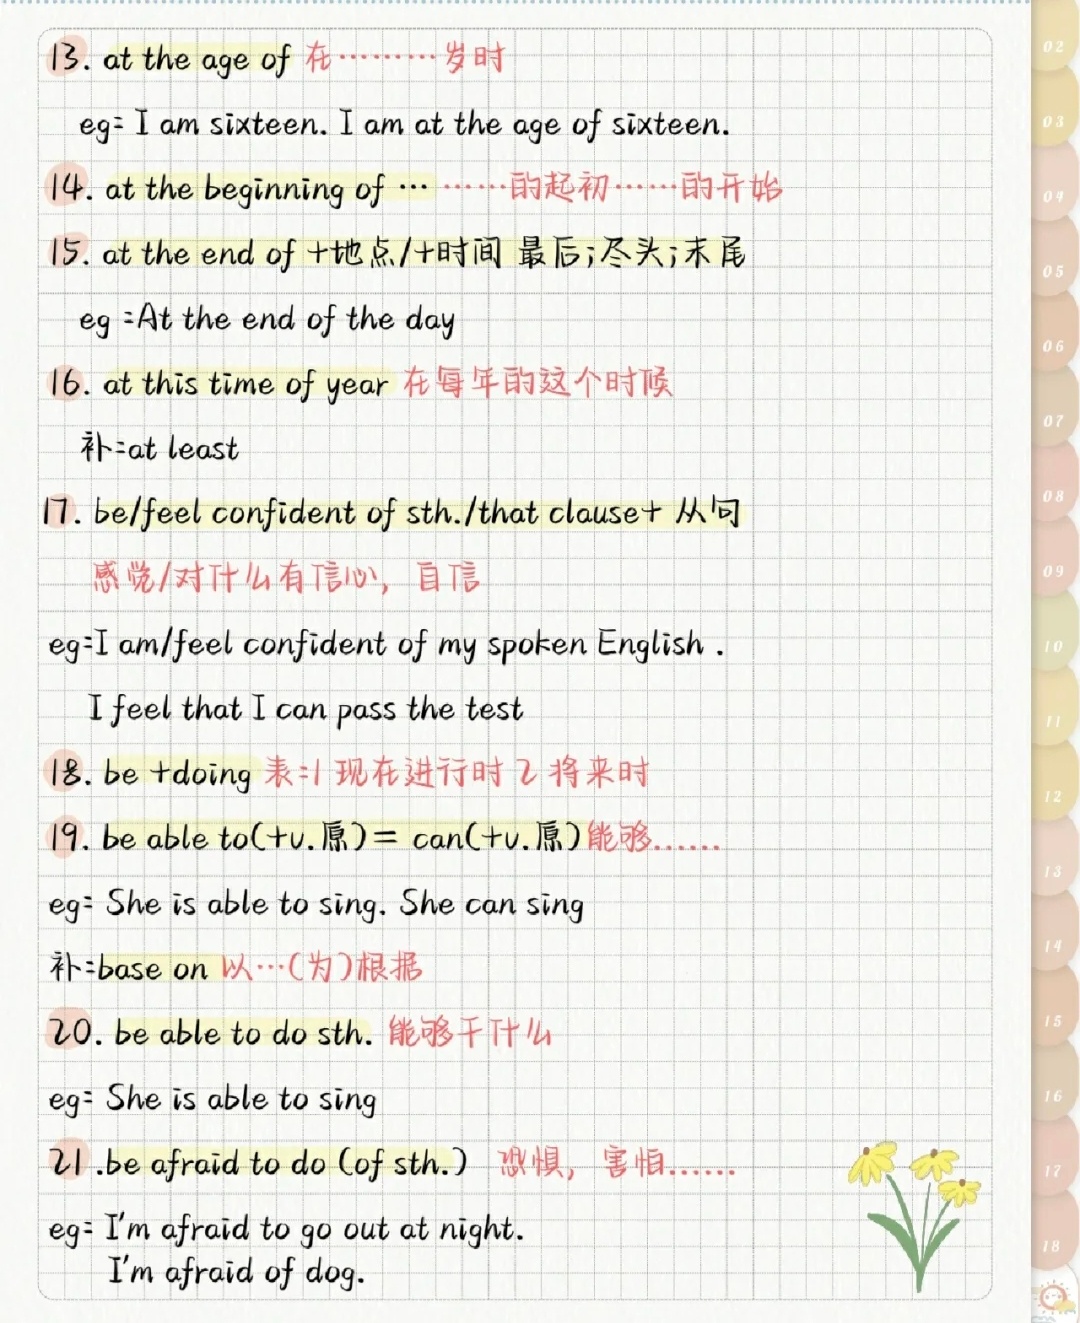 13. at the age of 在………岁时
eg: I am sixteen. I am at the age of sixteen.
14. at the beginning of … ……的起初……的开始
15. at the end of +地点/+时间 最后;尽头;末尾
eg :At the end of the day
16. at this time of year 在每年的这个时候
补:at least
17. be/feel confident of sth./that clause+ 从句
感觉/对什么有信心, 自信
eg:I am/feel confident of my spoken English .
I feel that I can pass the test
18. be +doing 表:1 现在进行时 2 将来时
19. be able to(+v.原)= can(+v.原)能够......
eg: She is able to sing. She can sing
补:base on 以…(为)根据
20. be able to do sth. 能够干什么
eg: She is able to sing
21 .be afraid to do (of sth.) 恐惧, 害怕......
eg: I'm afraid to go out at night.
I'm afraid of dog.
02
03
04
05
06
07
08
09
10
11
12
13
14
15
16
17
18